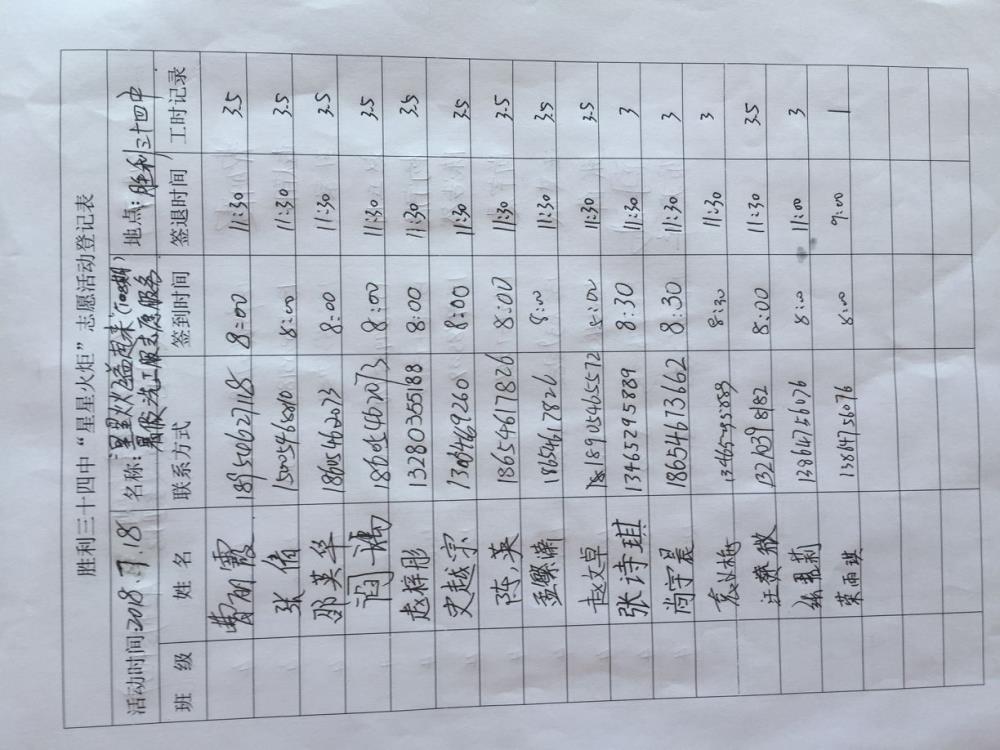 胜利三十四中“星星火炬”志愿活动登记表
活动时间:2018.7.18 名称: 地点:胜利三十四中
班 级 姓 名 联系方式 签到时间 签退时间 工时记录
曹丽霞 18954627118 8:00 11:30 3.5
张倩 8:00 11:30 3.5
邵英华 18605462073 8:00 11:30 3.5
18605462073 8:00 11:30 3.5
赵梓彤 13280355188 8:00 11:30 3.5
史越宗 8:00 11:30 3.5
陈英 18654617826 8:00 11:30 3.5
18654617826 8:00 11:30 3.5
赵文卓 18905465572 8:00 11:30 3.5
张诗琪 13465295889 8:30 11:30 3
尚宇晨 18654673662 8:30 11:30 3
13465295889 8:30 11:30 3
8:00 11:30 3.5
13864756076 8:00 11:00 3
荣雨琪 13864756076 8:00 9:00 1